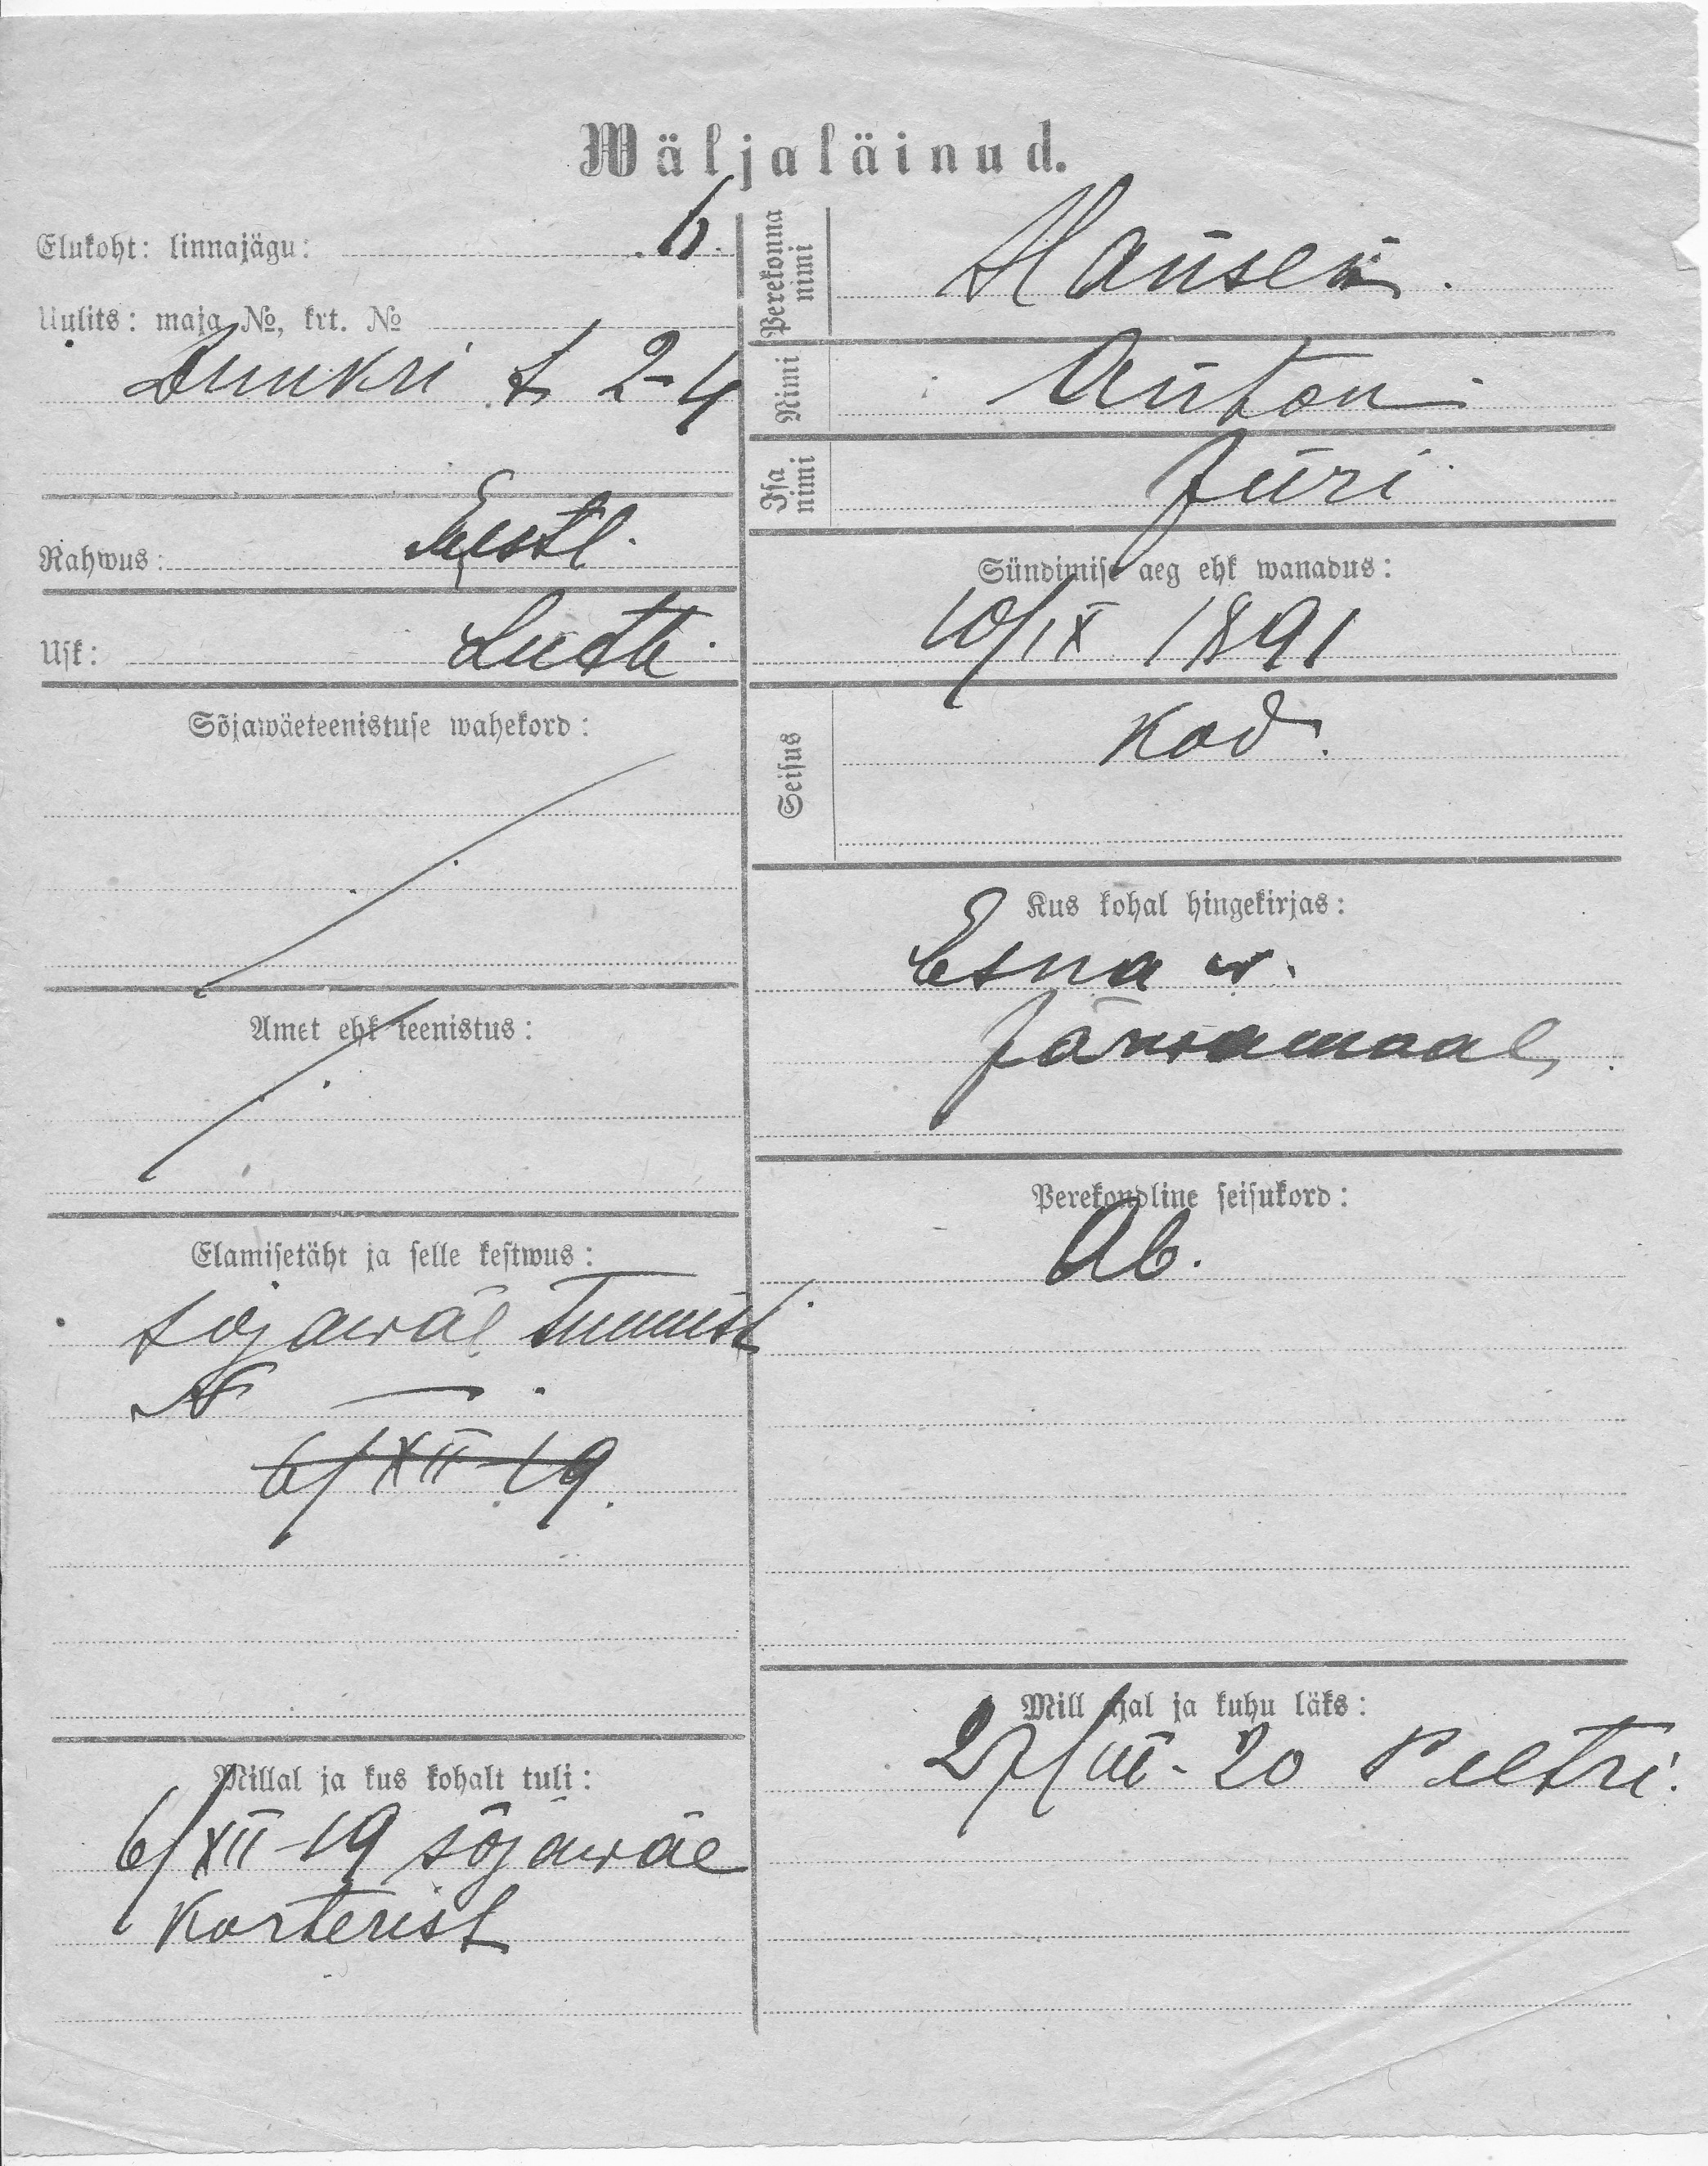 Wäljaläinud.
Elukoht: linnajägu: 6.
Uulits: maja №, krt. №
Dunkri t 2-4
Rahwus: Eestl.
Usk: Luth.
Sõjawäeteenistuse wahekord:
Amet ehk teenistus:
Elamisetäht ja selle kestwus:
sõjawäe tunnist.
№ — .
6/XII-19.
Millal ja kus kohalt tuli:
6/XII-19 sõjawäe
korterist
Perekonna nimi
Hansen.
Nimi
Anton
Isa nimi
Jüri
Sündimise aeg ehk wanadus:
10/IX 1891
Seisus
Kod.
Kus kohal hingekirjas:
Esna w.
Järwamaal
Perekondline seisukord:
Ab.
Mill ajal ja kuhu läks:
27/III-20 Peetri.